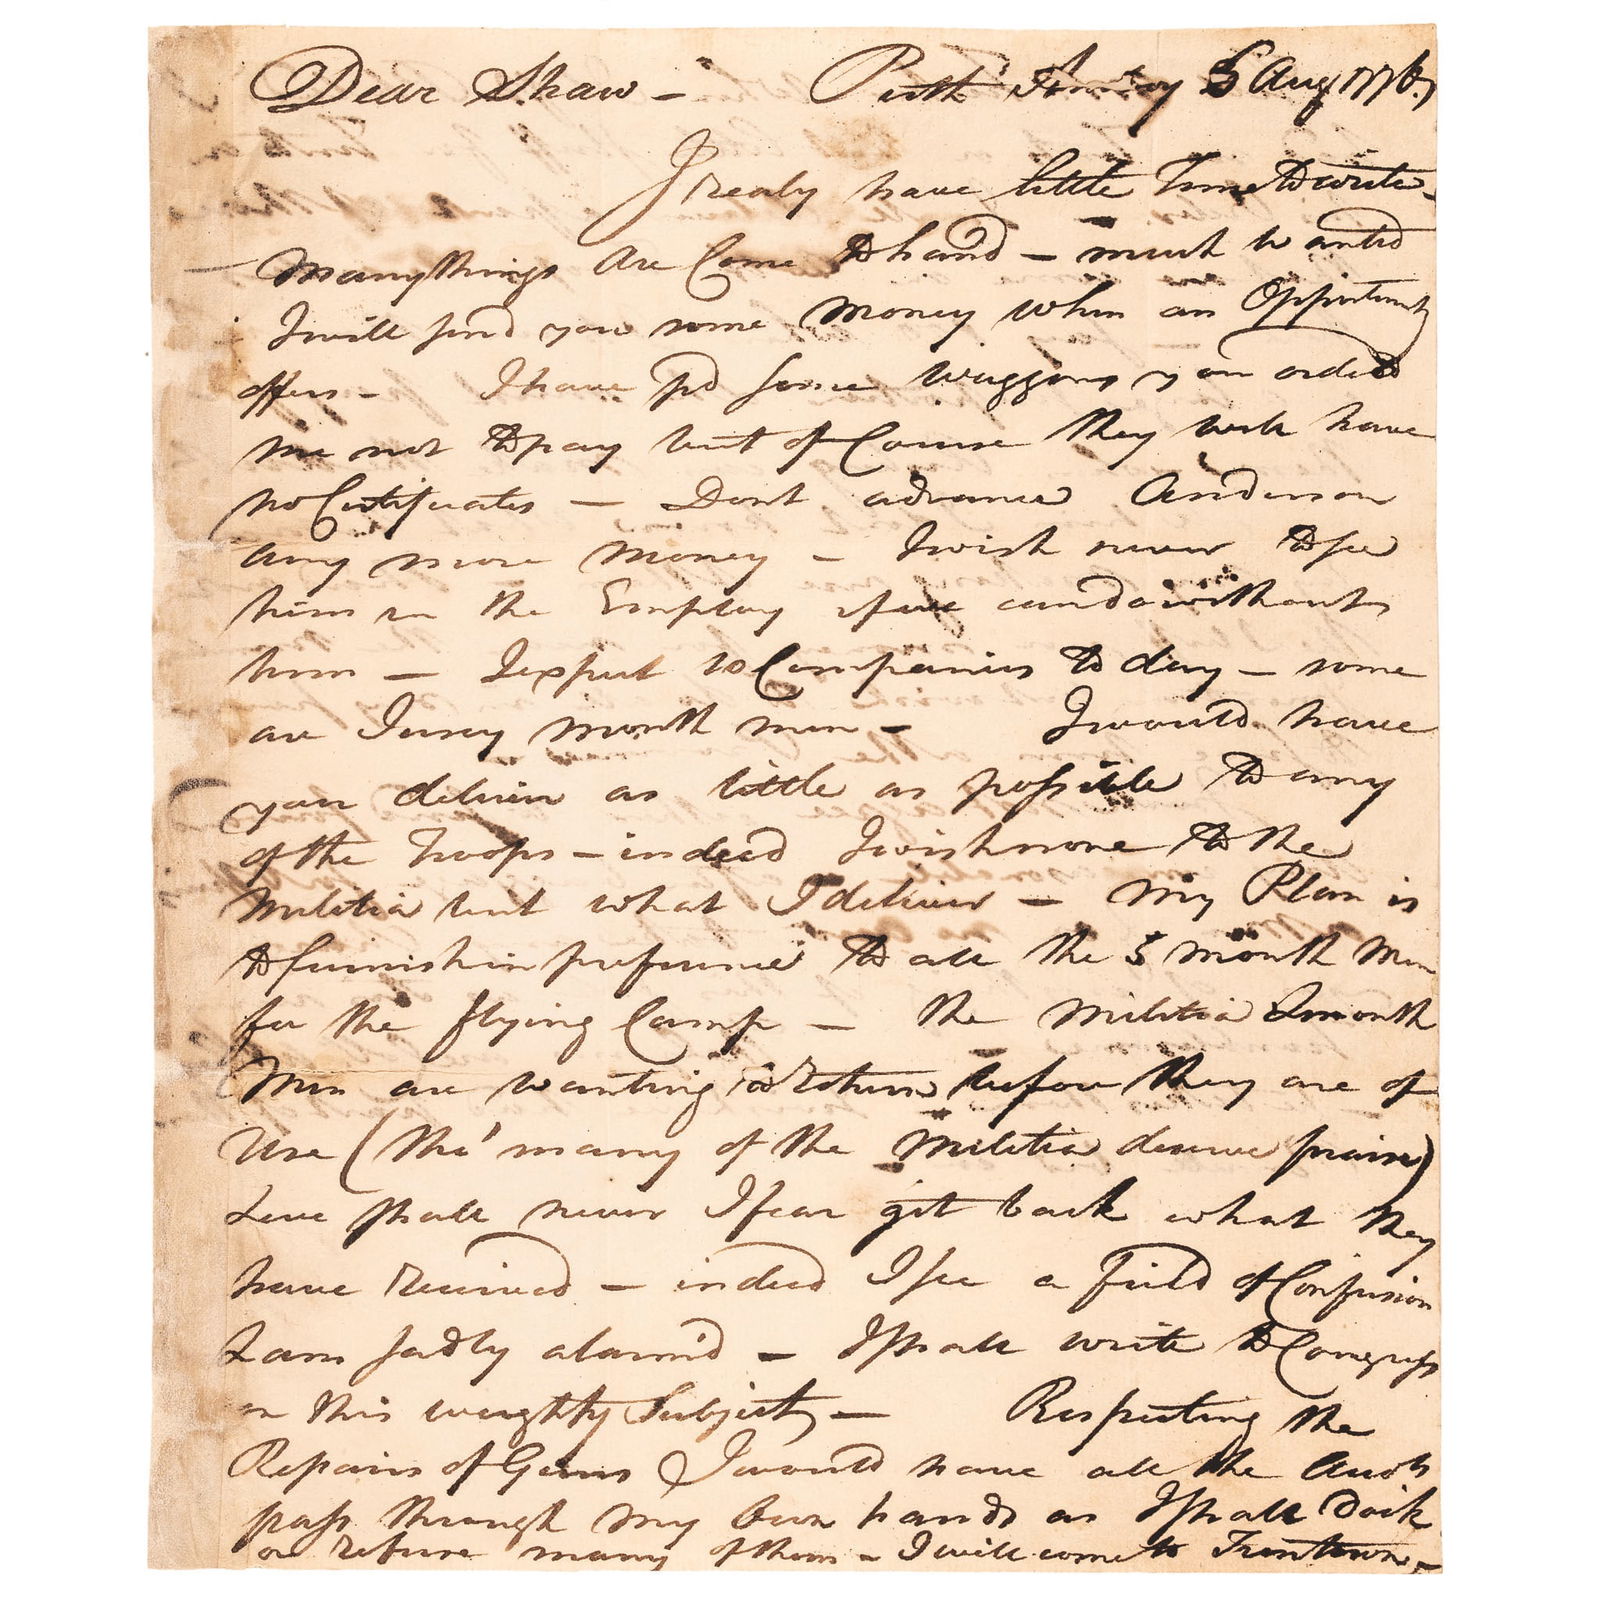 Dear Shaw - Perth Amboy 5 Aug 1776,
I realy have little Time to write -
Many things are Come to hand - much wanted
I will send you some money when an Oppertunity
offers - I have pd some Waggons you orderd
me not to pay but of Course they will have
no Certificates - Dont advance Anderson
any more money - I wish never to see
him in the Employ if we can do without
him - I expect 10 Companies to day - some
are Jersey month men - I would have
you deliver as little as possible to any
of the Troops - indeed I wish none to the
Militia but what I deliver - My Plan is
to furnish in preference to all the 5 month Men
for the flying Camp - the Militia month
Men are wanting to return before they are of
Use (tho' many of the Militia deserve praise)
& we shall never I fear get back what they
have received - indeed I see a field of Confusion
& am sadly alarm'd - I shall write to Congress
on this weighty Subject - Respecting the
Repairs of Guns I would have all the Accts
pass through my own hands as I shall dock
or refuse many of them - I will come to Trentown -